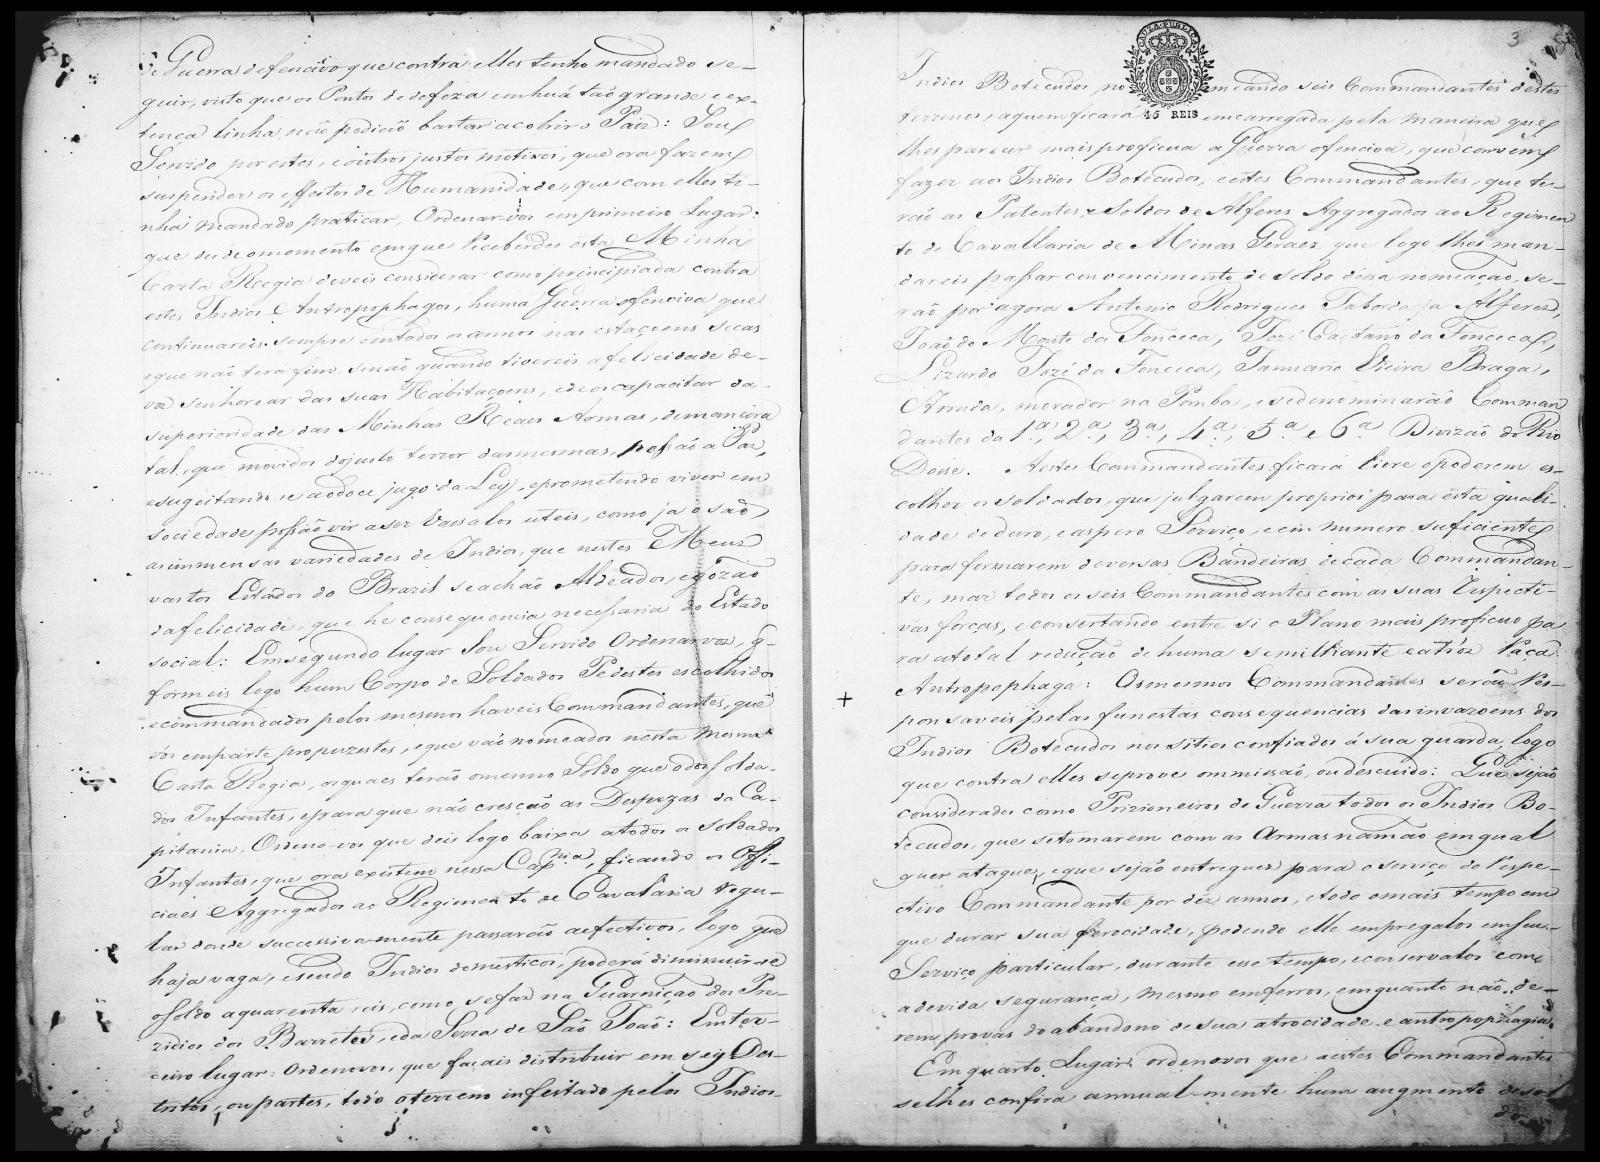 de Guerra defencivo que contra elles tenho mandado se-
guir, visto que os Pontos de defeza em huã taõ grande e ex-
tenca linha, naõ podiaõ bastar a cobrir o Paiz: Sou
Servido por estes, e outros justos motivos, que ora fazem
suspender os effeitos de Humanidade, que com elles ti-
nha mandado praticar, Ordenar-vos em primeiro Lugar:
que desde o momento em que Receberdes esta Minha
Carta Regia deveis considerar como principiada contra
estes Indios Antropophagos, huma Guerra ofenciva que
continuareis sempre em todos os annos nas estaçoens secas
e que naõ terá fim, senaõ quando tivereis a felicidade de
vos senhorear das suas Habitaçoens, e de os capacitar da
superioridade das Minhas Reaes Armas, de maneira
tal, que movidos do justo terror das mesmas, pessaõ a Paz,
e sugeitando-se ao doce jugo da Ley, e prometendo viver em
sociedade possaõ vir a ser Vassalos uteis, como ja o saõ
as immensas variedades de Indios, que nestes Meus
vastos Estados do Brazil se achaõ Aldeados, e gozaõ
da felicidade, que he consequencia necessaria do Estado
social: Em segundo lugar Sou Servido Ordenarvos, q̃
formeis logo hum Corpo de Soldados Pedestes escolhidos
e commandados pelos mesmos haveis Commandantes, que
vós em parte propuzestes, e que vaõ nomeados nesta mesma
Carta Regia, os quaes teraõ o mesmo Soldo que o dos Solda-
dos Infantes, e para que naõ cresçaõ as Despezas da Ca-
pitania, Ordeno-vos que deis logo baixa a todos os Soldados
Infantes, que ora existem nessa Cap.nia, ficando os Offi-
ciaes Aggregados ao Regimento de Cavallaria Regu-
lar donde successivamente passaraõ a efectivos, logo que
haja vaga, e sendo Indios domesticos, poderá diminuir-se
o Soldo a quarenta reis, como se faz na Guarniçaõ dos Pre-
zidios dos Barretos, e da Serra de Saõ Joaõ: Em ter-
ceiro lugar: Ordenovos, que façais distribuir em seis Des-
tritos, ou partes, todo o terreno infestado pelos Indios
3
CAUZA PUBLICA
45 REIS
Indios Botecudos, nomeando seis Commandantes destes
terrenos, a quem ficará encarregada pela maneira que
lhes parecer mais proficua a Guerra ofenciva, que convem
fazer aos Indios Botecudos, e estes Commandantes, que te-
raõ as Patentes e Soldos de Alferes Aggregados ao Regimen
to de Cavallaria de Minas Geraez que logo lhes man-
dareis passar com vencimento de soldo dessa nomeaçaõ, se-
raõ por agora Antonio Rodrigues Taborda ja Alferes,
Joaõ do Monte da Fonceca, Jozé Caetano da Fonceca,
Lizardo Jozé da Fonceca, Januario Vieira Braga,
Arruda, morador na Pomba, e se denominaraõ Comman
dantes da 1.ª, 2.ª, 3.ª, 4.ª, 5.ª e 6.ª Divizaõ do Rio
Dosse. A estes Commandantes ficará livre o poderem es-
colher os soldados, que julgarem proprios para esta quali-
dade de duro, e aspero Serviço, e em numero suficiente
para formarem deversas Bandeiras de cada Commandan-
te, mas todos os seis Commandantes com as suas Respecti-
vas forças, e consertando entre si o Plano mais proficuo pa
ra a total reduçaõ de huma semilhante e atroz Raça
Antropophaga: Os mesmos Commandantes seraõ Res-
+
ponsaveis pelas funestas consequencias das invazoens dos
Indios Botecudos nos sitios confiados á sua guarda, logo
que contra elles se prove ommissaõ, ou descuido: Que sejaõ
considerados como Prizioneiros de Guerra todos os Indios Bo-
tecudos, que se tomarem com as Armas na maõ em qual
quer ataque, e que sejaõ entregues para o serviço do Respe-
ctivo Commandante por dez annos, e todo o mais tempo em
que durar sua ferocidade, podendo elle empregalos em seu
Serviço particular, durante esse tempo, e conservalos com
a devida segurança, mesmo em ferros, em quanto naõ de-
rem provas do abandono de sua atrocidade e antropophagia.
Em quarto Lugar: ordenovos que a estes Commandantes
se lhes confira annual-mente hum augmento de sol
do